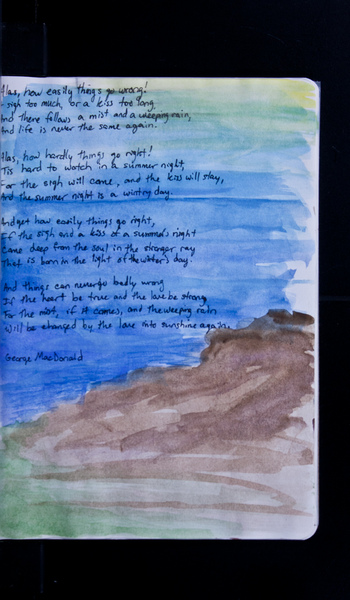 Alas, how easily things go wrong!
A sigh too much, or a kiss too long,
And there follows a mist and a weeping rain,
And life is never the same again.
Alas, how hardly things go right!
Tis hard to watch in a summer night,
For the sigh will come, and the kiss will stay,
And the summer night is a wintry day.
And yet how easily things go right,
If the sigh and a kiss of a summer's night
Come deep from the soul in the stronger ray
That is born in the light of the winter's day!
And things can never go badly wrong
If the heart be true and the love be strong,
For the mist, if it comes, and the weeping rain
Will be changed by the love into sunshine again.
George MacDonald